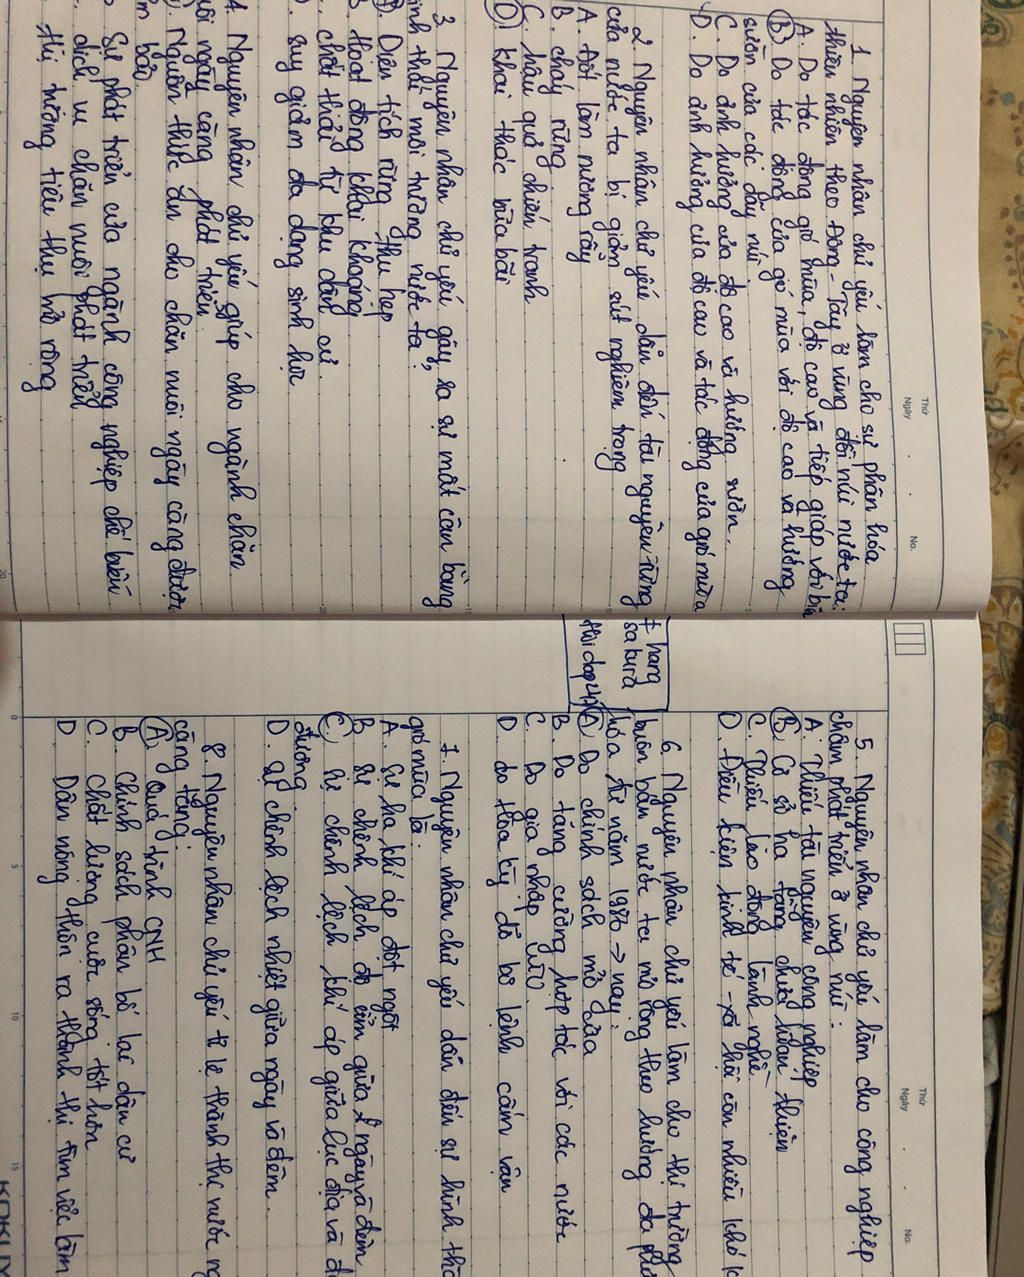 Thứ
Ngày
No.
1. Nguyên nhân chủ yếu làm cho sự phân hóa
thiên nhiên theo Đông - Tây ở vùng đồi núi nước ta:
A. Do tác động gió mùa, độ cao và tiếp giáp với biển
B. Do tác động của gió mùa với độ cao và hướng
sườn của các dãy núi
C. Do ảnh hưởng của độ cao và hướng sườn.
D. Do ảnh hưởng của độ cao và tác động của gió mùa
2. Nguyên nhân chủ yếu dẫn đến tài nguyên rừng
của nước ta bị giảm sút nghiêm trọng
A. Đốt làm nương rẫy
B. cháy rừng
C. hậu quả chiến tranh
D. khai thác bừa bãi
3. Nguyên nhân chủ yếu gây ra sự mất cân bằng
sinh thái môi trường nước ta
A. Diện tích rừng thu hẹp
B hoạt động khai khoáng
chất thải từ khu dân cư.
suy giảm đa dạng sinh học
4. Nguyên nhân chủ yếu giúp cho ngành chăn
nuôi ngày càng phát triển.
Nguồn thức ăn cho chăn nuôi ngày càng được
đảm bảo.
Sự phát triển của ngành công nghiệp chế biến
dịch vụ chăn nuôi phát triển
thị trường tiêu thụ mở rộng
Thứ
Ngày
No.
5. Nguyên nhân chủ yếu làm cho công nghiệp
chậm phát triển ở vùng núi:
A. Thiếu tài nguyên công nghiệp
B. Cơ sở hạ tầng chưa hoàn thiện
C. Thiếu lao động lành nghề
D. Điều kiện kinh tế - xã hội còn nhiều khó k
6. Nguyên nhân chủ yếu làm cho thị trường
buôn bán nước ta mở rộng theo hướng đa phư
hóa từ năm 1986 → nay:
A Do chính sách mở cửa
B. Do tăng cường hợp tác với các nước
C. Do gia nhập WTO.
D. do Hoa Kỳ đỡ bỏ lệnh cấm vận
+ hang
sakura
7. Nguyên nhân chủ yếu dẫn đến sự hình thà
gió mùa là:
A. Sự hạ khí áp đột ngột
B sự chênh lệch độ ẩm giữa ngày và đêm
C. sự chênh lệch khí áp giữa lục địa và đ
dương
D. sự chênh lệch nhiệt giữa ngày và đêm.
8. Nguyên nhân chủ yếu tỉ lệ thành thị nước ng
càng tăng:
A. Quá trình CNH
B. chính sách phân bố lại dân cư
C. chất lượng cuộc sống tốt hơn
D Dân nông thôn ra thành thị tìm việc làm